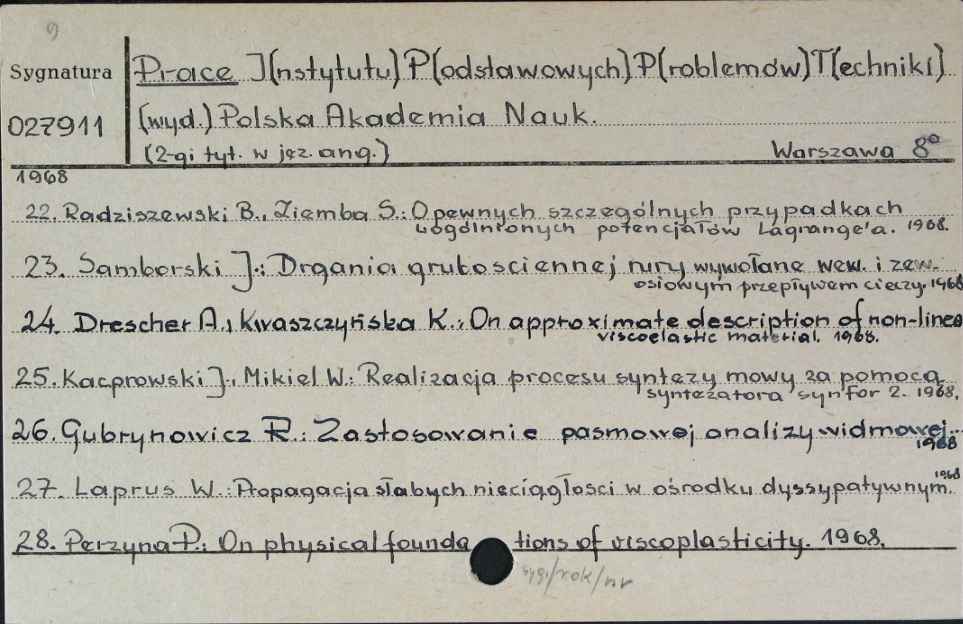 9
Sygnatura
027911
Prace I(nstytutu) P(odstawowych) P(roblemów) T(echniki)
(wyd.) Polska Akademia Nauk.
(2-gi tyt. w jęz. ang.) Warszawa 8°
1968
22. Radziszewski B., Ziemba S.: O pewnych szczególnych przypadkach
uogólnionych potencjałów Lagrange'a. 1968.
23. Samborski J.: Drgania grubościennej rury wywołane wew. i zew.
osiowym przepływem cieczy. 1968
24. Drescher A., Kwaszczyńska K.: On approximate description of non-linea
viscoelastic material. 1968.
25. Kacprowski J., Mikiel W.: Realizacja procesu syntezy mowy za pomocą
syntezatora syn for 2. 1968.
26. Gubrynowicz R.: Zastosowanie pasmowej analizy widmowej.
1968
27. Laprus W.: Propagacja słabych nieciągłości w ośrodku dyssypatywnym. 1968
28. Perzyna P.: On physical founda tions of viscoplasticity. 1968.
sygn/rok/nr